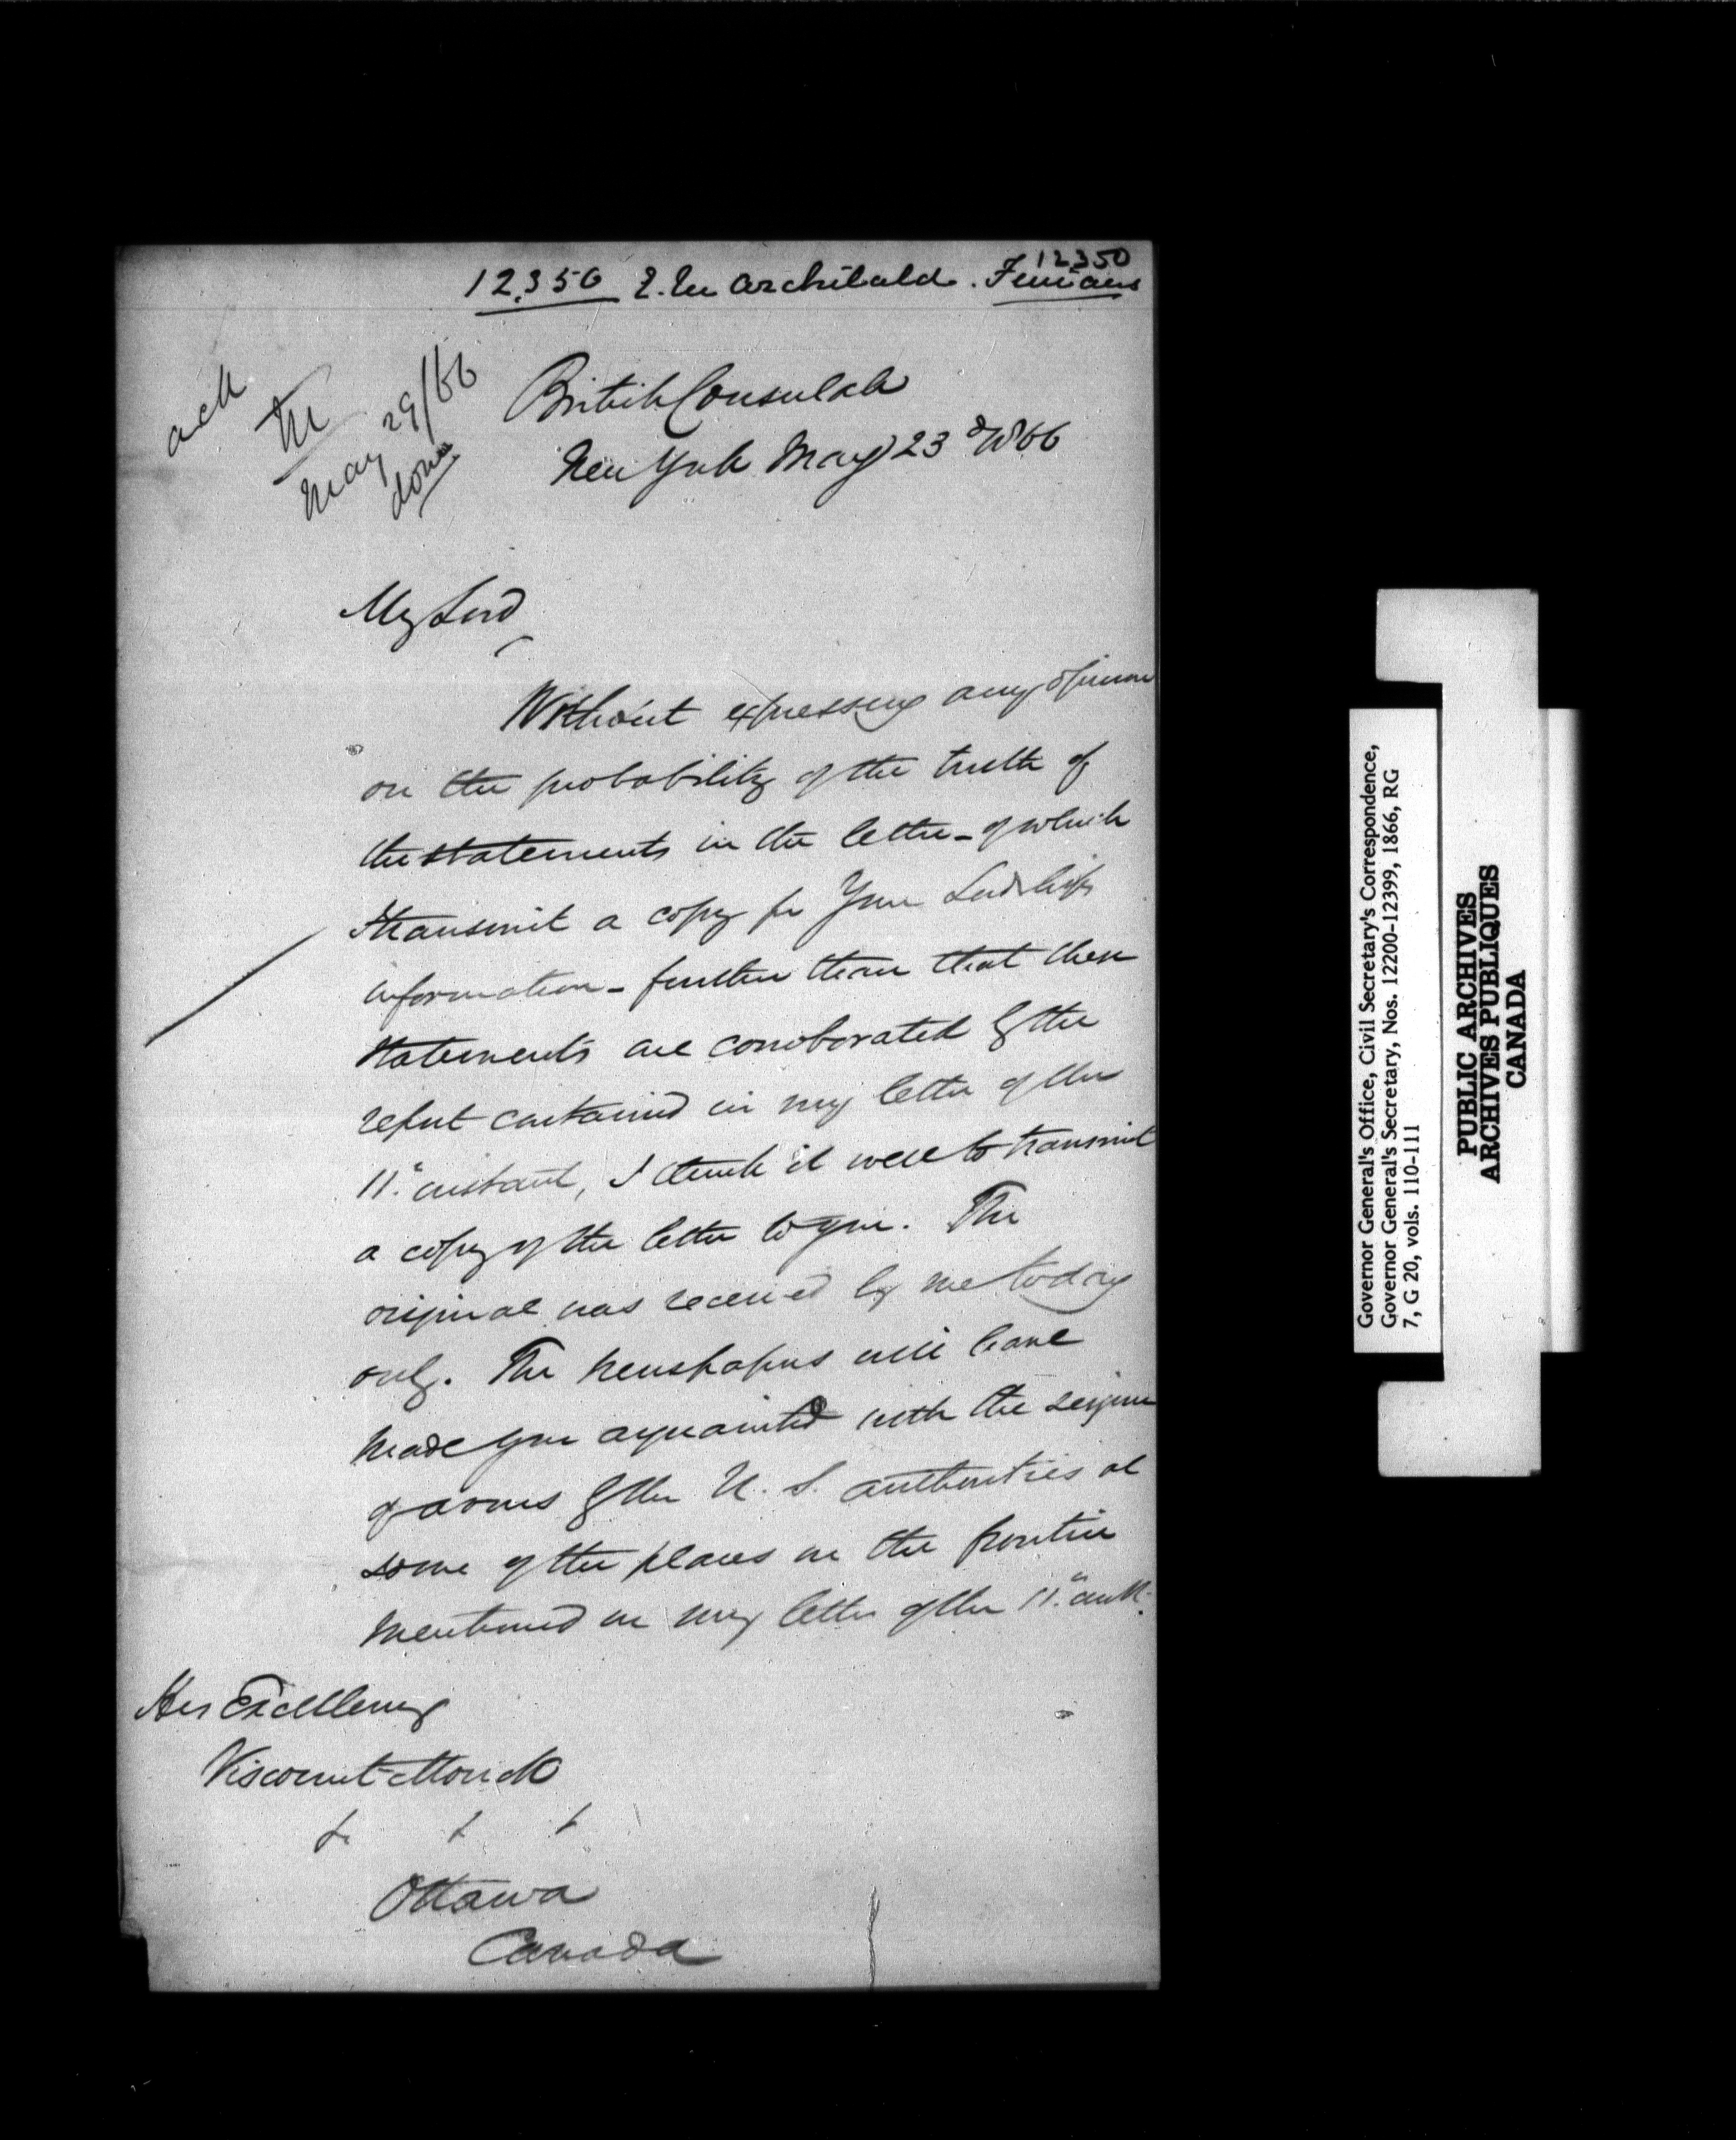 12350
12,350 E. M Archibald. Fenians
ack
M
May 29/66
done
British Consulate
New York May 23d 1866
My Lord,
Without expressing any opinion
on the probability of the truth of
the statements in the letter - of which
I transmit a copy for Your Lordship's
information - further than that these
statements are corroborated by the
report contained in my letter of the
11th instant, I think it well to transmit
a copy of the letter to you. The
original was received by me today
only. The newspapers will have
made you acquainted with the seizure
of arms by the U. S. authorities at
some of the places on the frontier
mentioned in my letter of the 11th
His Excellency
Viscount Monck
& & &
Ottawa
Canada
Governor General's Office, Civil Secretary's Correspondence,
Governor General's Secretary, Nos. 12200-12399, 1866, RG
7, G 20, vols. 110-111
PUBLIC ARCHIVES
ARCHIVES PUBLIQUES
CANADA